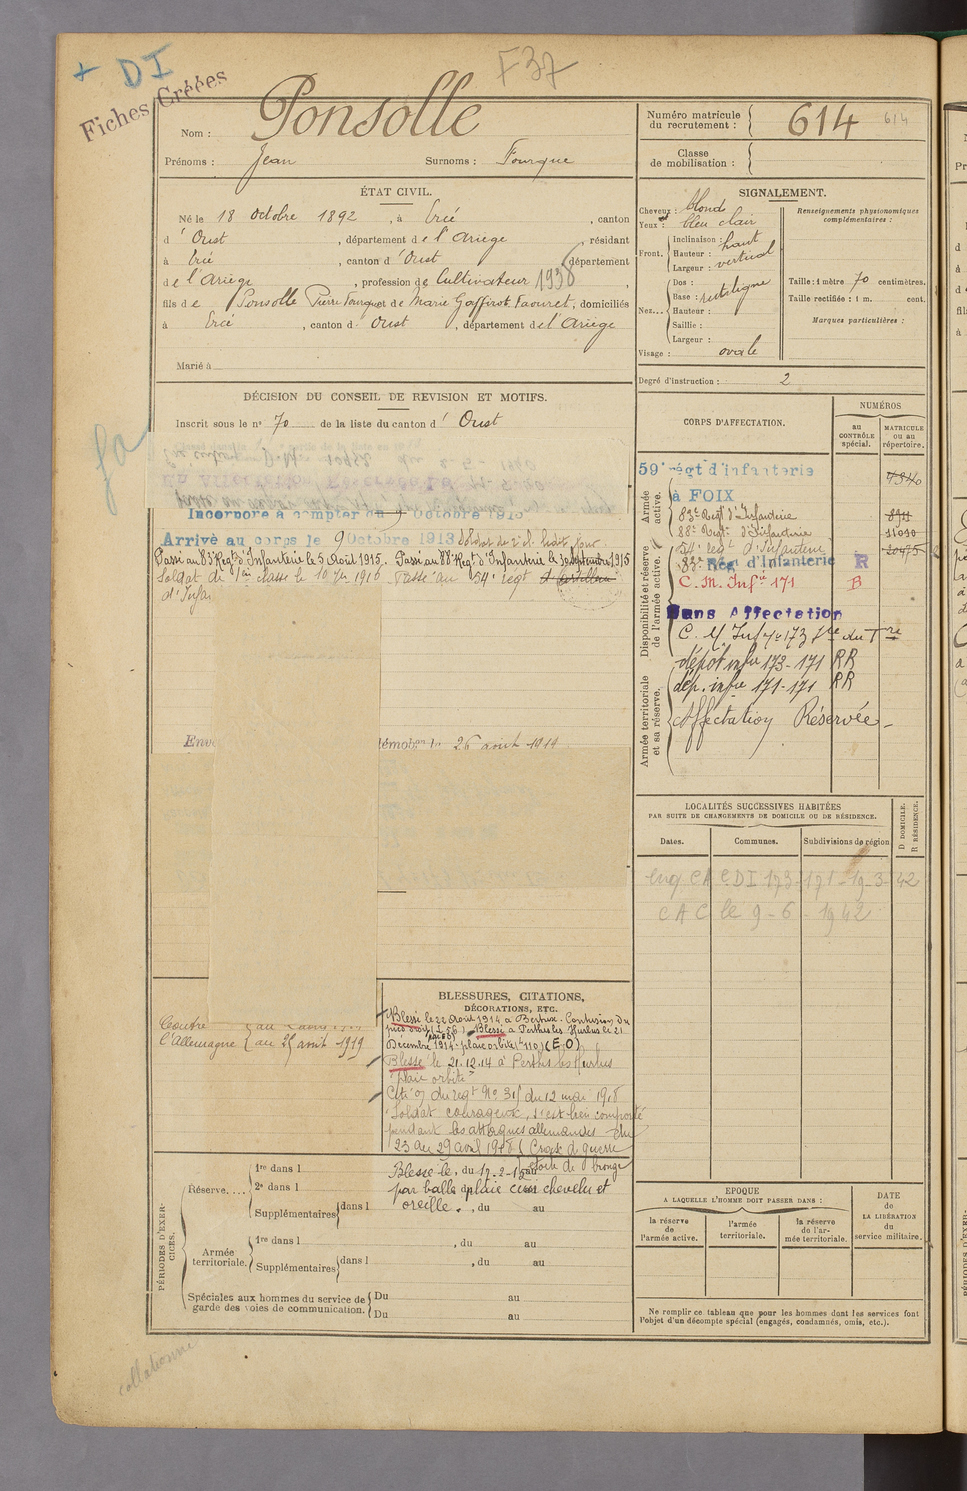 + DI
F37
Fiches Créées
Nom : Ponsolle
Prénoms : Jean Surnoms : Fourque
Numéro matricule du recrutement : 614 614
Classe de mobilisation :
ÉTAT CIVIL.
Né le 18 Octobre 1892, à Ercé, canton
d'Oust, département de l'Ariège, résidant
à Ercé, canton d'Oust, département
de l'Ariège, profession de Cultivateur 1938
fils de Ponsolle Pierre Fourque et de Marie Gaffirot Faouret, domiciliés
à Ercé, canton d'Oust, département de l'Ariège
Marié à
SIGNALEMENT.
Cheveux : blond
Yeux : bleu clair
Front. Inclinaison : haut
Hauteur : vertical
Largeur :
Nez... Dos :
Base : rectiligne
Hauteur :
Saillie :
Largeur :
Visage : ovale
Renseignements physionomiques complémentaires :
Taille : 1 mètre 70 centimètres.
Taille rectifiée : 1 m. cent.
Marques particulières :
Degré d'instruction : 2
DÉCISION DU CONSEIL DE REVISION ET MOTIFS.
Inscrit sous le n° 70 de la liste du canton d'Oust
Incorporé à compter du 9 Octobre 1913
Arrivé au corps le 9 Octobre 1913 Soldat de 2e cl. ledit jour.
Passé au 83e Regt d'Infanterie le 5 Août 1915. Passé au 88e Regt d'Infanterie le 30 Septembre 1915
Soldat de 1ère classe le 10 Jer 1916 Passé au 54e regt d'Artillerie
d'Infan
démobon le 26 août 1919
Contre
l'Allemagne au 25 août 1919
CORPS D'AFFECTATION.
NUMÉROS
au CONTRÔLE spécial.
MATRICULE ou au répertoire.
Armée active.
59e régt d'infanterie
à FOIX
83e Regt d'Infanterie
88e Regt d'Infanterie 11090
Disponibilité et réserve de l'armée active.
54e regt d'Infanterie 20475
83e Régt d'Infanterie R
C. M. Infie 171 B
Sans Affectation
Armée territoriale et sa réserve.
dépôt infie 173-171 RR
dép. infie 171-171 RR
Affectation Réservée
LOCALITÉS SUCCESSIVES HABITÉES
PAR SUITE DE CHANGEMENTS DE DOMICILE OU DE RÉSIDENCE.
Dates. Communes. Subdivisions de région
D. DOMICILE.
R. RÉSIDENCE.
CDI 173-171-19-3-42
CAC le 9-6-1942
BLESSURES, CITATIONS,
DÉCORATIONS, ETC.
Blessé le 22 Août 1914 à Bertrix - Contusion du
pied droit (L 56). Blessé à Perthes les Hurlus le 21
Décembre 1914 - plaie orbite (L 110) (E.O)
Blessé le 21.12.14 à Perthes les Hurlus
"plaie orbite"
Cité O/ du regt No 315 du 12 mai 1918
"Soldat courageux, s'est bien comporté
pendant les attaques allemandes du
23 au 29 avril 1918 (Croix de guerre
étoile de bronze
Blessé le 17-2-15
par balle plaie cuir chevelu et
oreille.
PÉRIODES D'EXERCICES.
Réserve....
1re dans l
2e dans l
Supplémentaires dans l , du au
Armée territoriale.
1re dans l , du au
Supplémentaires dans l , du au
Spéciales aux hommes du service de garde des voies de communication.
Du au
Du au
EPOQUE
A LAQUELLE L'HOMME DOIT PASSER DANS :
la réserve de l'armée active.
l'armée territoriale.
la réserve de l'armée territoriale.
DATE de LA LIBÉRATION du service militaire.
Ne remplir ce tableau que pour les hommes dont les services font
l'objet d'un décompte spécial (engagés, condamnés, omis, etc.).
collationné